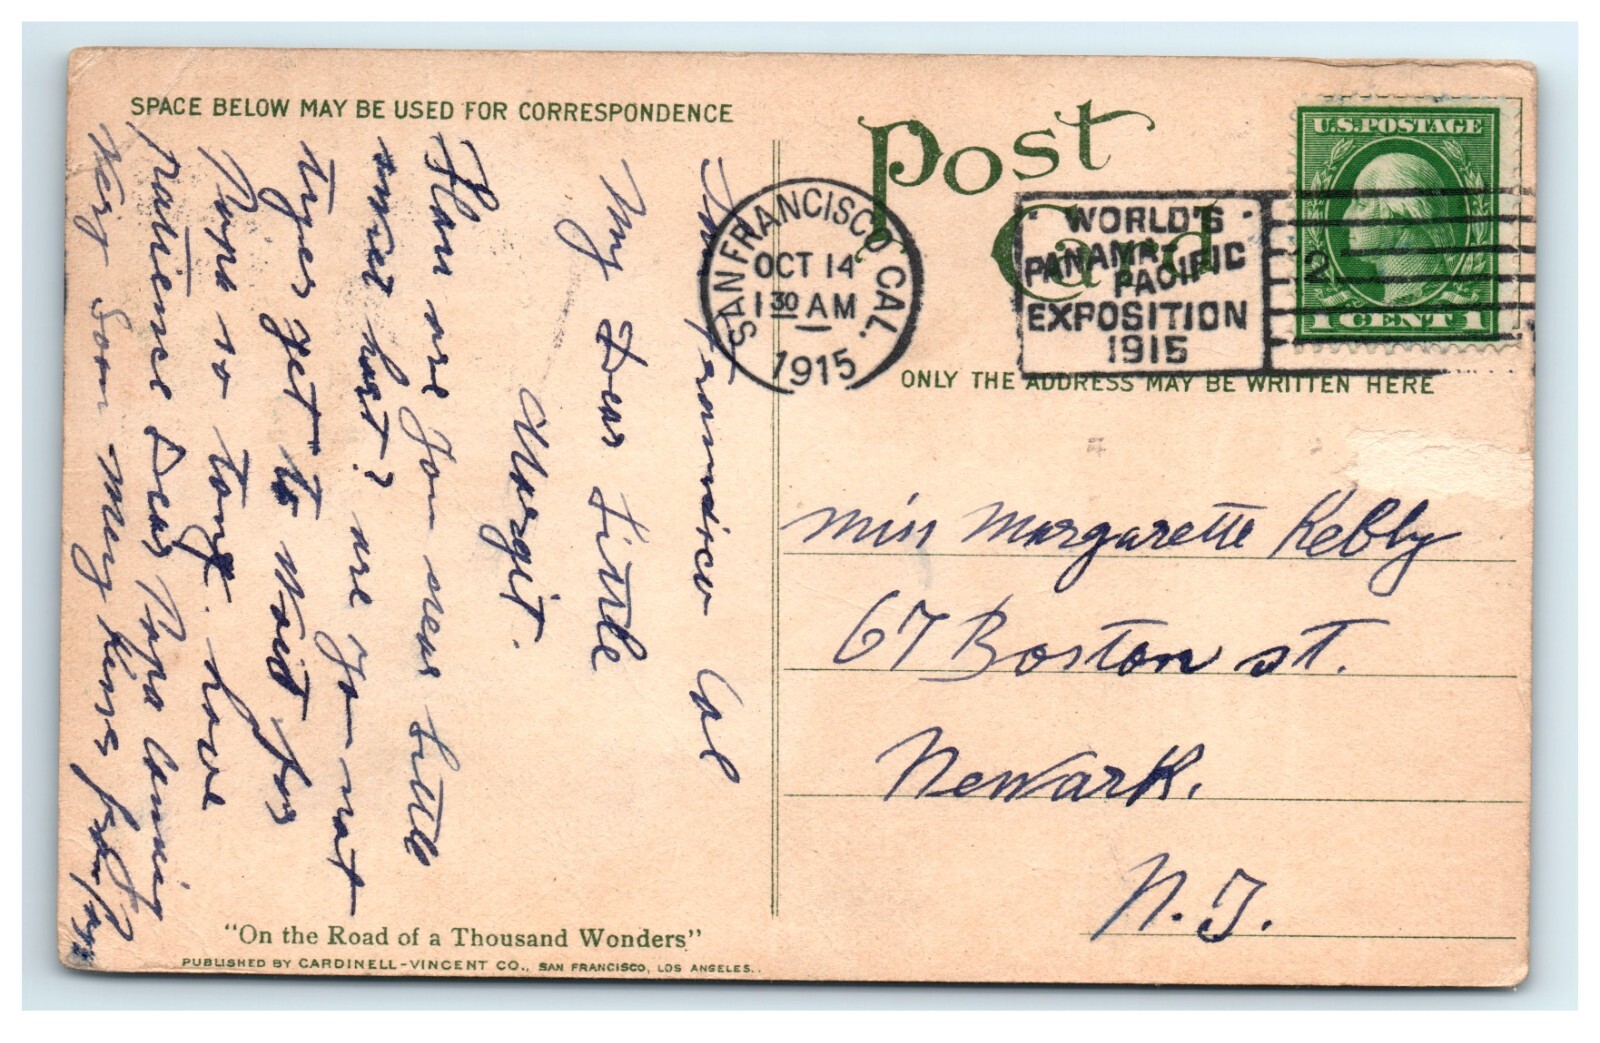 SPACE BELOW MAY BE USED FOR CORRESPONDENCE
San Francisco Cal
My Dear Little
Margit.
How are you dear Little
sweet hart? are yo not
tyer get to wait for
Papa so long. have
patience Dear Papa Coming
very soon many kiss from Papa
"On the Road of a Thousand Wonders"
PUBLISHED BY CARDINELL-VINCENT CO., SAN FRANCISCO, LOS ANGELES.
Post Card
SAN FRANCISCO, CAL.
OCT 14
1 30 AM
1915
WORLD'S
PANAMA
PACIFIC
EXPOSITION
1915
2
U.S. POSTAGE
1 CENT 1
ONLY THE ADDRESS MAY BE WRITTEN HERE
Miss Margarette
67 Boston st.
Newark.
N. J.